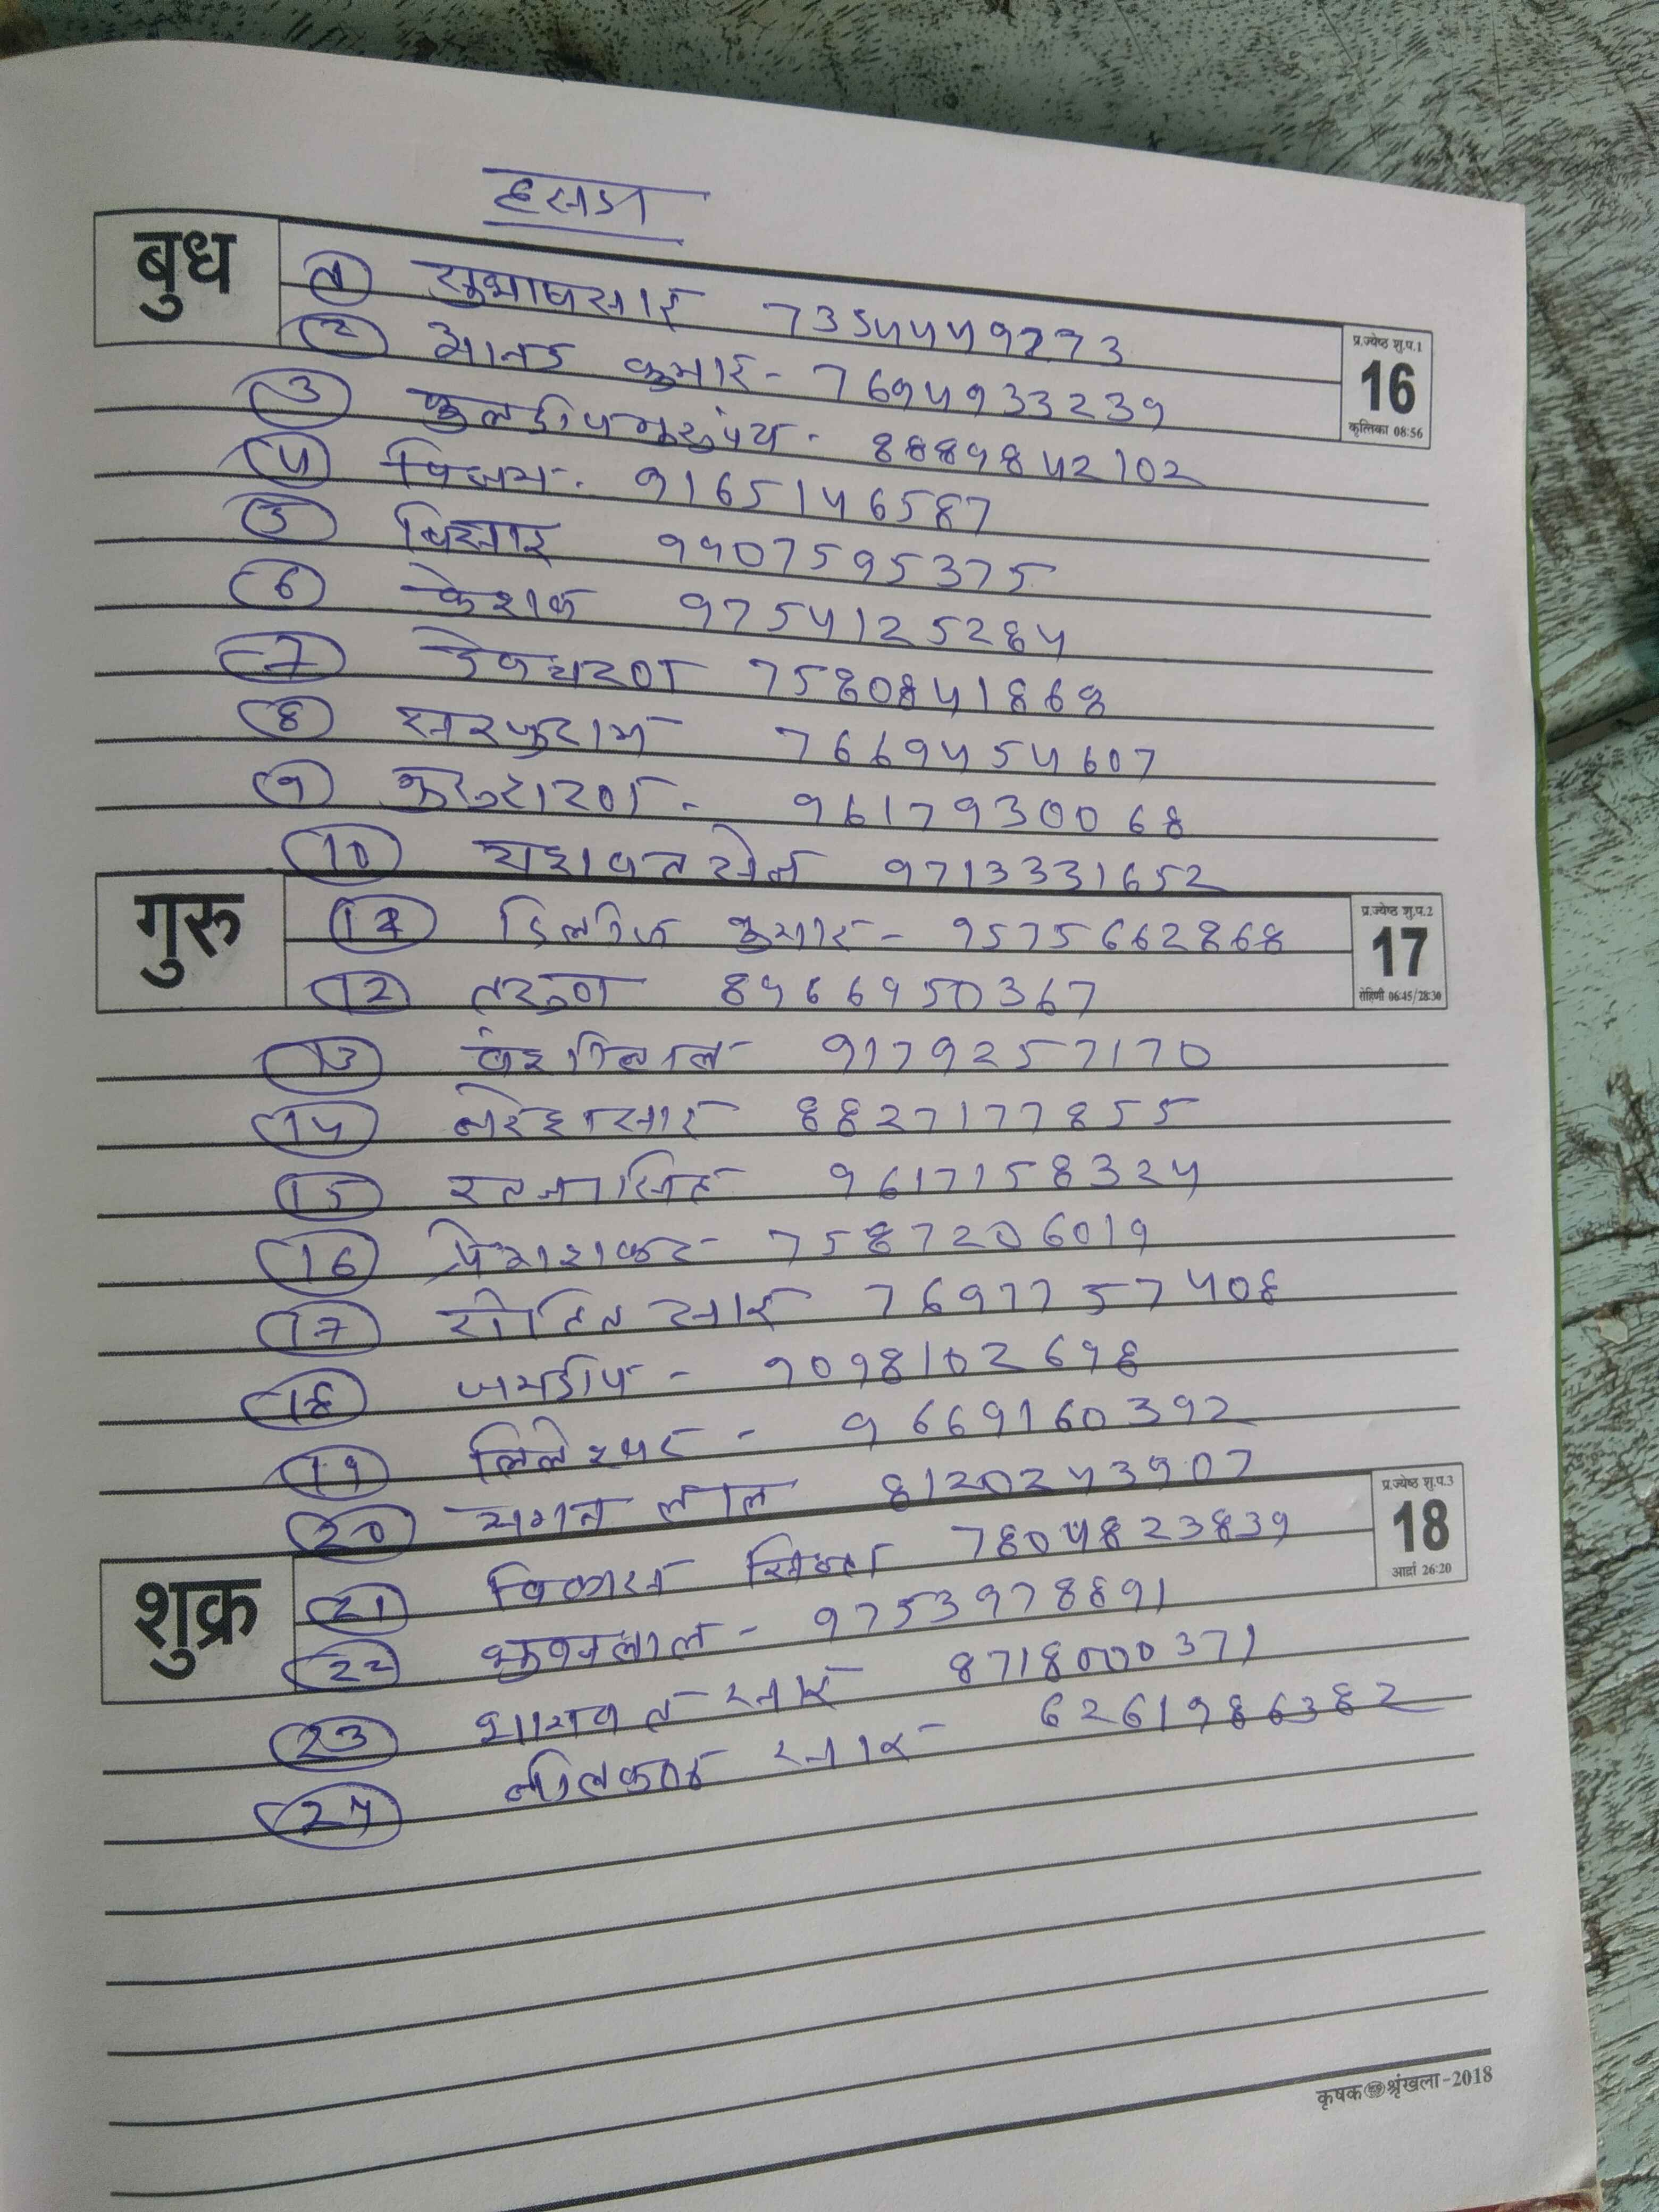 हसदा
बुध
प्र.ज्येष्ठ शु.प.1
16
कृत्तिका 08:56
1 सुभाष साई 7354449273
2 आनंद कुमार - 7694933239
3 कुलदीप - 8889842102
4 विजय - 9165146587
5 9407595375
6 केशव 9754125284
7 देवचरण 7580841868
8 सरजुराम 7669454607
9 - 9617930068
10 यशवंत सेन 9713331652
गुरु
प्र.ज्येष्ठ शु.प.2
17
रोहिणी 06:45/28:30
11 दिलीप कुमार - 9575662868
12 तरुण 8966950367
13 वंशीलाल 9179257170
14 नरेश साई 8827177855
15 9617158324
16 प्रेमशंकर 7587206019
17 रोहित साई 7697757408
18 जयदीप - 9098102698
19 लिलेश्वर - 9669160392
20 चमन लाल 8120243907
शुक्र
प्र.ज्येष्ठ शु.प.3
18
आर्द्रा 26:20
21 विकास सिन्हा 7804823839
22 भुवनलाल - 9753978891
23 भागवत साई 8718000371
24 नीलकंठ साई 6261986382
कृषक श्रृंखला-2018